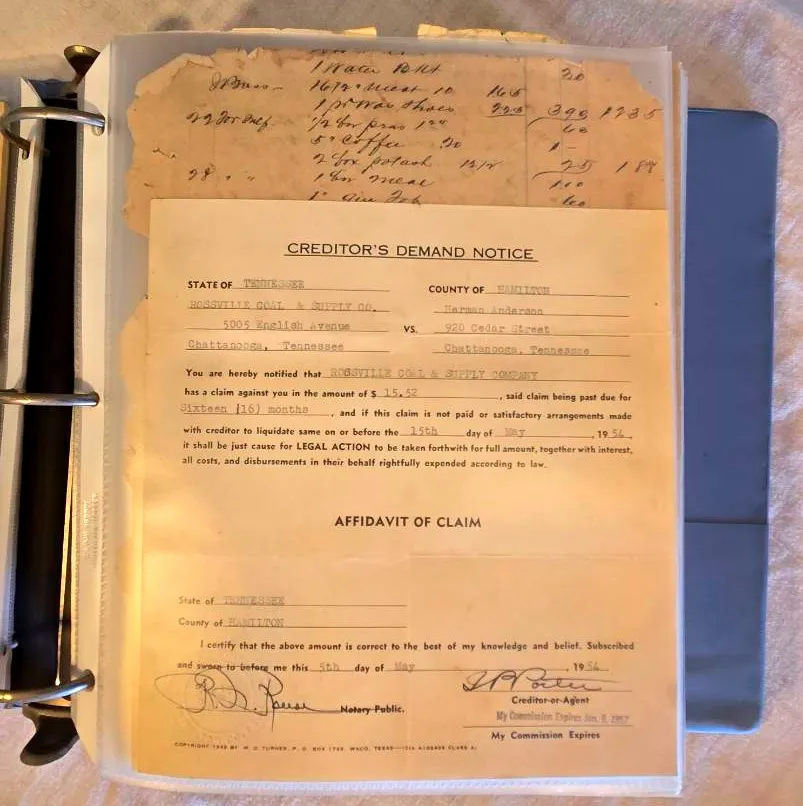 1 Water Bkt 20
16 1/2 " Meat 10 165
1 pr Wos Shoes 225 390 1235
1/2 bu peas 1 20 60
5 " Coffee 20 1 -
2 box potash 12 1/2 25 1 85
28 " " 1 bu meal 1 10
60
CREDITOR'S DEMAND NOTICE
STATE OF TENNESSEE COUNTY OF HAMILTON
ROSSVILLE COAL & SUPPLY CO. Herman Anderson
5005 English Avenue VS. 920 Cedar Street
Chattanooga, Tennessee Chattanooga, Tennessee
You are hereby notified that ROSSVILLE COAL & SUPPLY COMPANY
has a claim against you in the amount of $ 15.52, said claim being past due for
Sixteen (16) months, and if this claim is not paid or satisfactory arrangements made
with creditor to liquidate same on or before the 15th day of May, 1954,
it shall be just cause for LEGAL ACTION to be taken forthwith for full amount, together with interest,
all costs, and disbursements in their behalf rightfully expended according to law.
AFFIDAVIT OF CLAIM
State of TENNESSEE
County of HAMILTON
I certify that the above amount is correct to the best of my knowledge and belief. Subscribed
and sworn to before me this 5th day of May, 1954
Notary Public.
Creditor or Agent
My Commission Expires Jan. 6, 1957
My Commission Expires
COPYRIGHT BY W. D. TURNER, P. O. BOX WACO, TEXAS